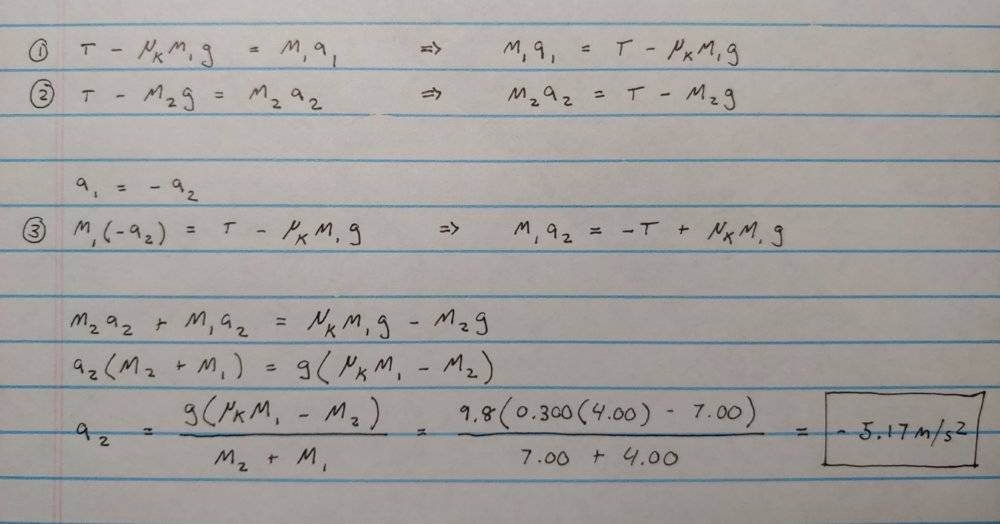 ① T - μₖm₁g = m₁a₁ => m₁a₁ = T - μₖm₁g
② T - m₂g = m₂a₂ => m₂a₂ = T - m₂g
a₁ = - a₂
③ m₁(-a₂) = T - μₖm₁g => m₁a₂ = -T + μₖm₁g
m₂a₂ + m₁a₂ = μₖm₁g - m₂g
a₂(m₂ + m₁) = g(μₖm₁ - m₂)
a₂ = g(μₖm₁ - m₂) / m₂ + m₁ = 9.8(0.300(4.00) - 7.00) / 7.00 + 4.00 = - 5.17 m/s²